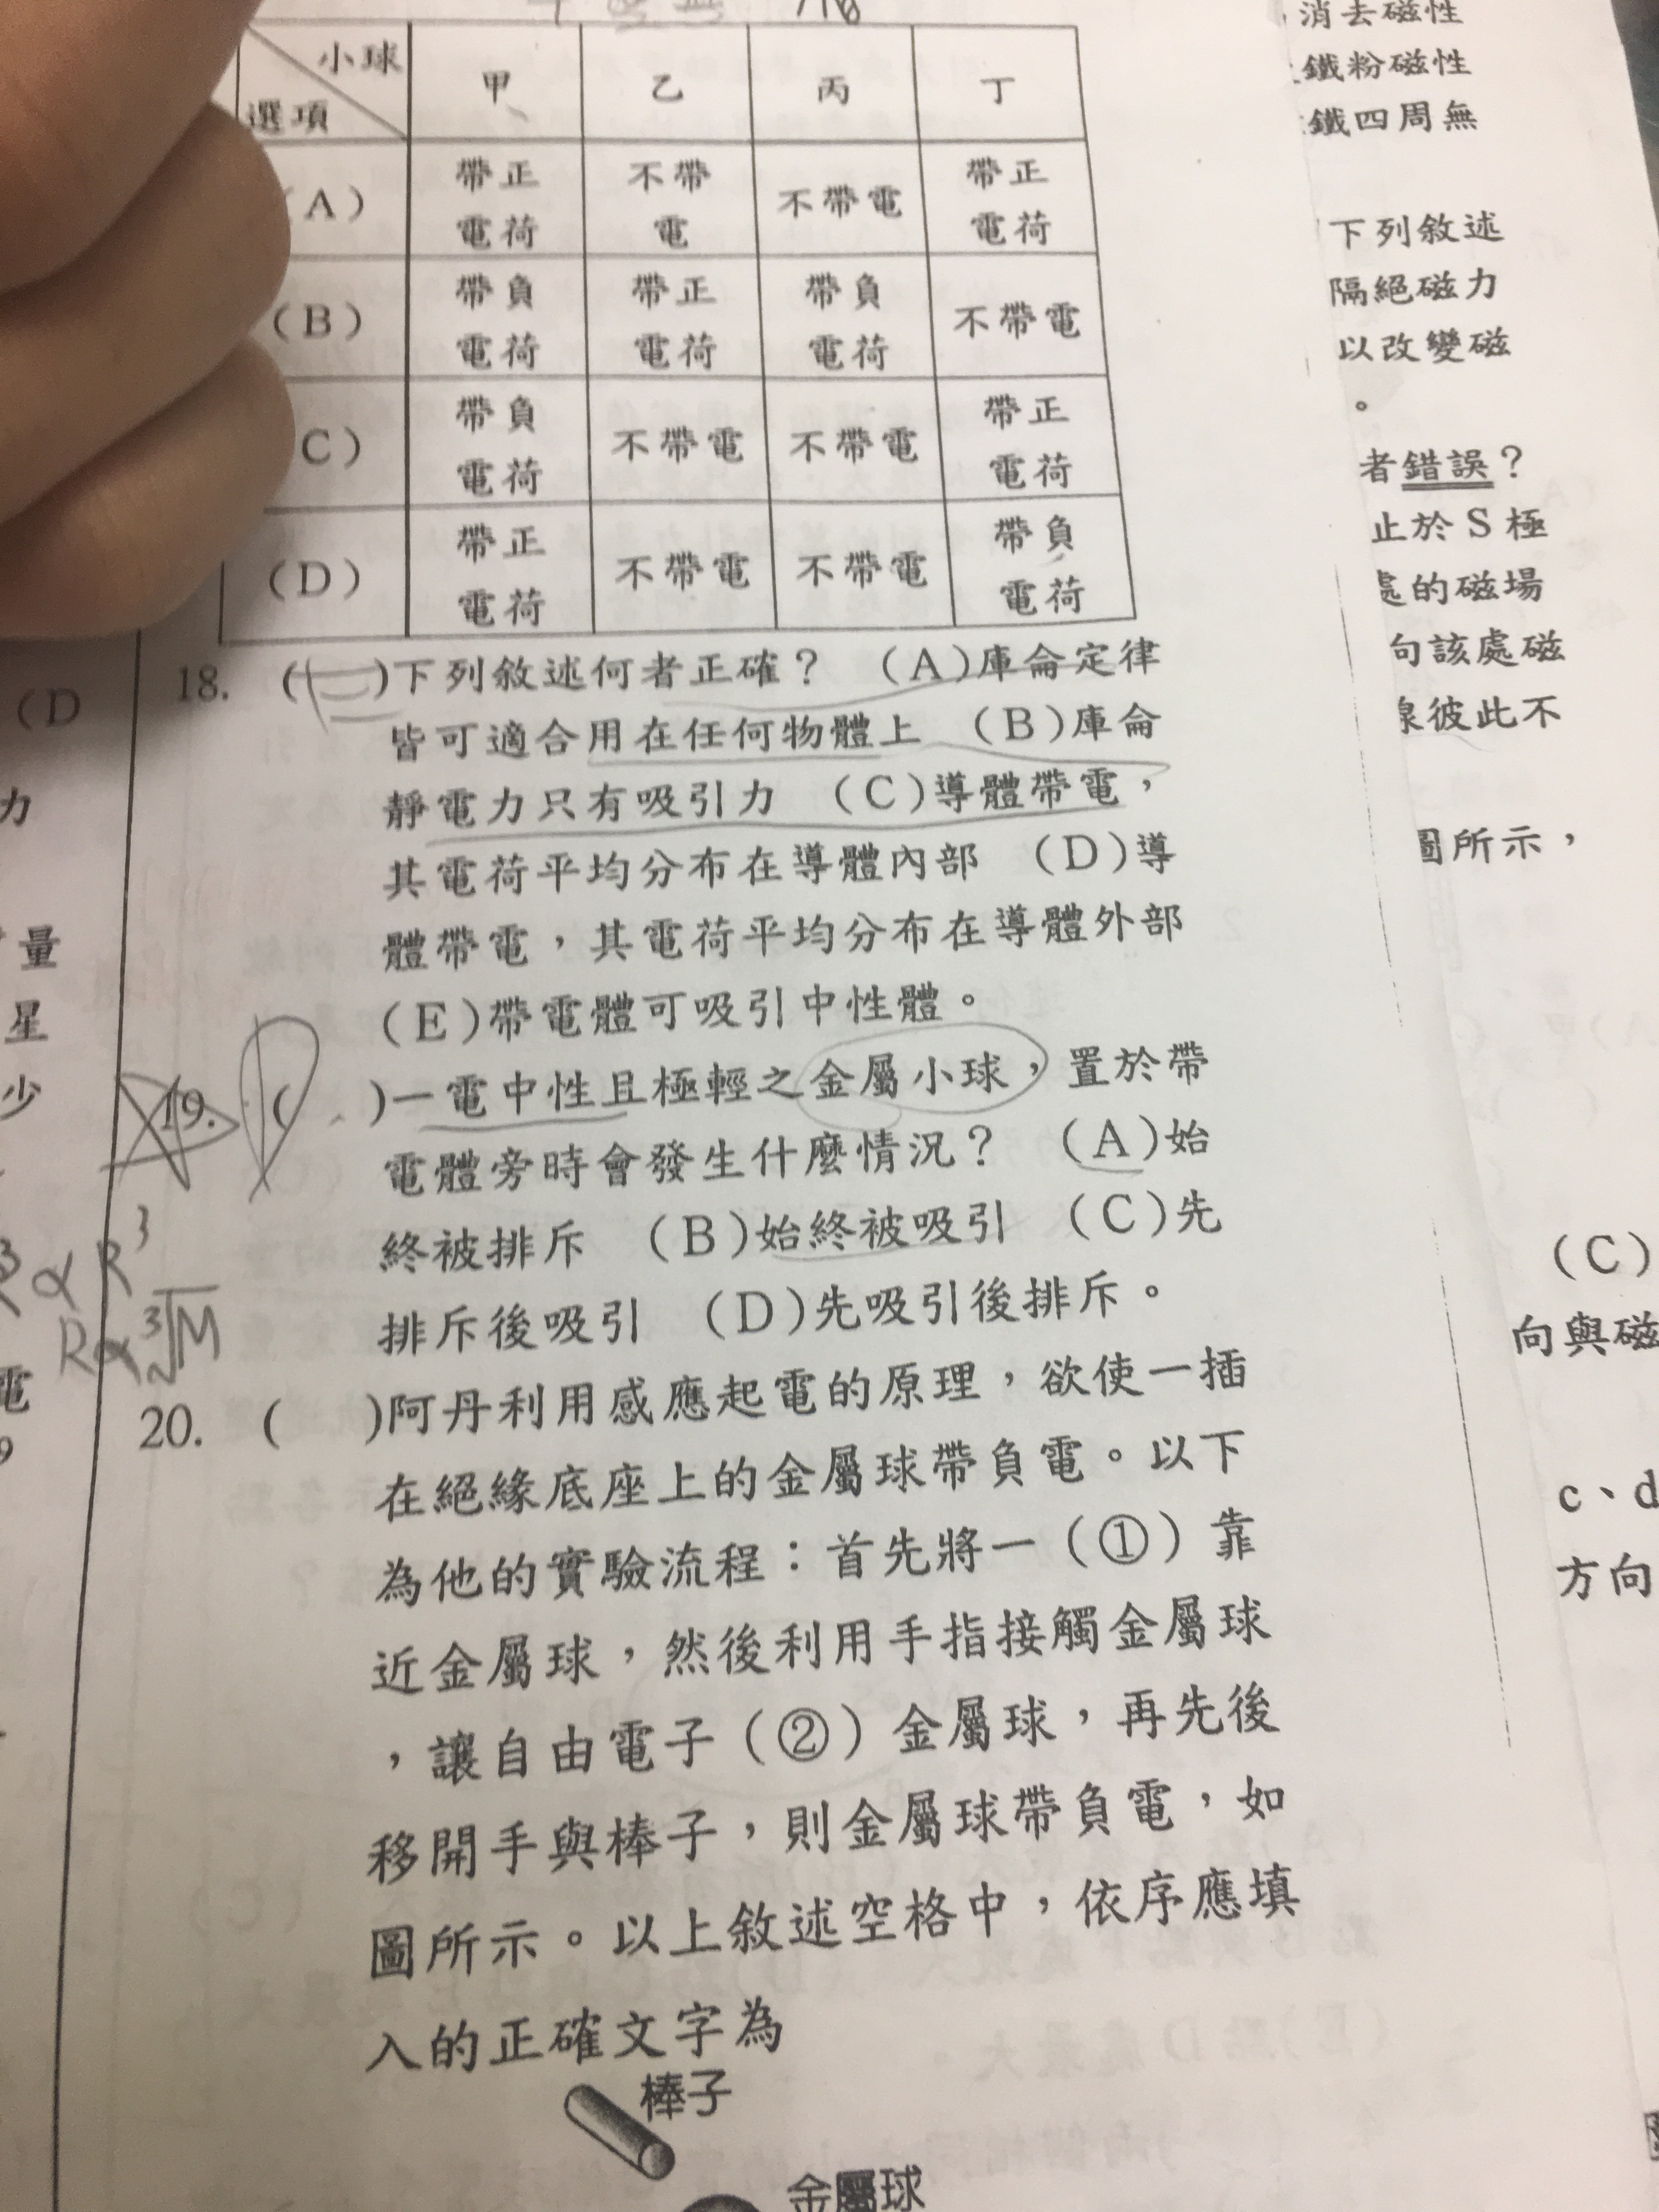 小球
選項
甲 乙 丙 丁
(A) 帶正電荷 不帶電 不帶電 帶正電荷
(B) 帶負電荷 帶正電荷 帶負電荷 不帶電
C) 帶負電荷 不帶電 不帶電 帶正電荷
(D) 帶正電荷 不帶電 不帶電 帶負電荷
18. ( E )下列敘述何者正確? (A)庫侖定律
皆可適合用在任何物體上 (B)庫侖
靜電力只有吸引力 (C)導體帶電,
其電荷平均分布在導體內部 (D)導
體帶電,其電荷平均分布在導體外部
(E)帶電體可吸引中性體。
19. ( )一電中性且極輕之金屬小球,置於帶
電體旁時會發生什麼情況? (A)始
終被排斥 (B)始終被吸引 (C)先
排斥後吸引 (D)先吸引後排斥。
20. ( )阿丹利用感應起電的原理,欲使一插
在絕緣底座上的金屬球帶負電。以下
為他的實驗流程:首先將一(①)靠
近金屬球,然後利用手指接觸金屬球
,讓自由電子(②)金屬球,再先後
移開手與棒子,則金屬球帶負電,如
圖所示。以上敘述空格中,依序應填
入的正確文字為
棒子
金屬球
∝ R³
R∝³√M
(D
力
量
星
少
電
9
消去磁性
鐵粉磁性
鐵四周無
下列敘述
隔絕磁力
以改變磁
。
者錯誤?
止於S極
處的磁場
向該處磁
線彼此不
圖所示,
(C)
向與磁
c、d
方向